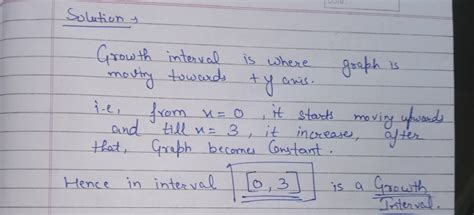 Solution →
Growth interval is where graph is
moving towards + y axis.
i.e, from x = 0, it starts moving upwards
and till x = 3, it increases, after
that, Graph becomes Constant.
Hence in interval [0, 3] is a Growth
Interval.